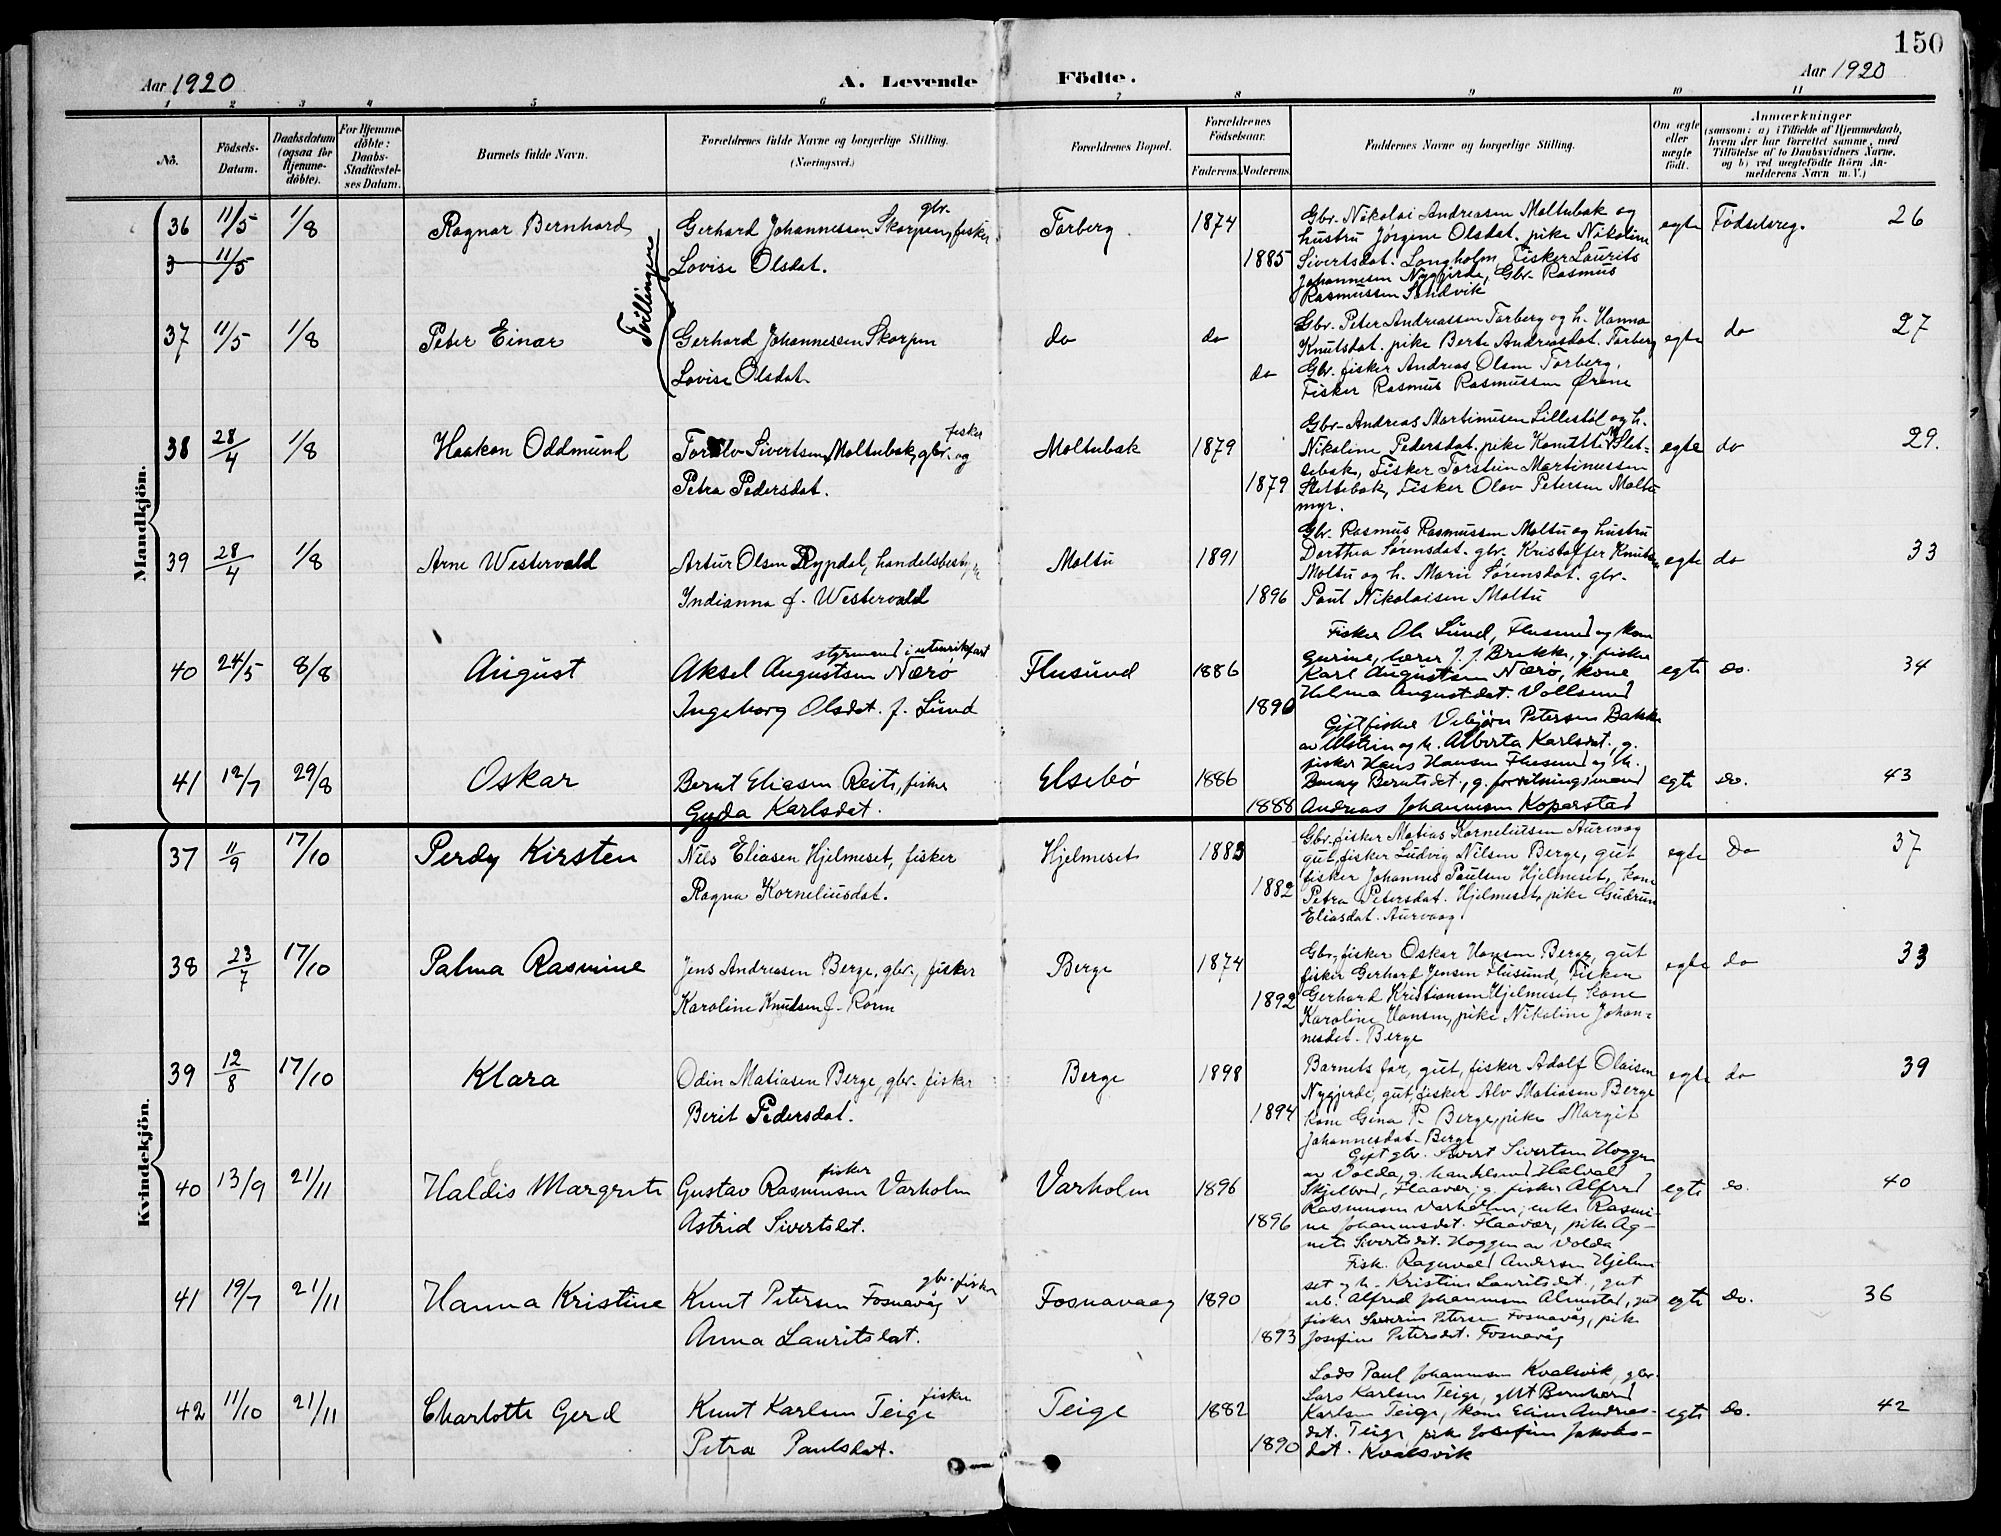 150
Aar 1920
A. Levende Födte.
Aar 1920
1 2 3 4 5 6 7 8 9 10 11
No.
Födsels-Datum.
Daabsdatum (ogsaa for Hjemme-döbte).
For Hjemme-döbte: Daabs-Stadfæstel-ses Datum.
Barnets fulde Navn.
Forældrenes fulde Navne og borgerlige Stilling.
(Næringsvei.)
Forældrenes Bopæl.
Forældrenes Födselsaar.
Faderens. Moderens.
Faddernes Navne og borgerlige Stilling.
Om ægte eller uægte födt.
Anmærkninger
(saasom: a) i Tilfælde af Hjemmedaab, hvem der har forrettet samme, med Tilföielse af to Daabsvidners Navne, og b) ved uegtefödte Börn Anmelderens Navn m. V.)
Mandkjön.
36 11/5 1/8 Ragnar Bernhard
gbr.
Gerhard Johannessen Skorpen, fisker
Lovise Olsdat.
Tarberg 1874 1885
Gbr. Nikolai Andreasen Moltubak og
hustru Jørgine Olsdat. pike Nikoline
Sivertsdat. Longholm, Fisker Laurits
Johannesen Nygjerde, Gbr. Rasmus
Rasmussen Sandvik
egte Fødselsreg. 26
3 11/5
Tvillinger
37 11/5 1/8 Peter Einar
Gerhard Johannessen Skorpen
Lovise Olsdat.
do do do
Gbr. Peter Andreassen Tarberg og h. Hanna
Knutsdat. pike Berte Andreasdat. Tarberg
Gbr. fisker Andreas Olsen Tarberg,
Fisker Rasmus Rasmussen Ørene
egte do 27
38 28/4 1/8 Haakon Oddmund
fisker
Torolv Sivertsen Moltubak, gbr. og
Petra Pedersdat.
Moltubak 1879 1879
Gbr. Andreas Martinusen Lillestøl og h.
Nikoline Pedersdat. pike
sebak, Fisker Torstein Martinussen
Slettebak, Fisker Olav Petersen Moltu
myr.
egte do 29.
39 28/4 1/8 Arne Westervald
Artur Olsen Rypdal, handelsbestyr
Indianna f. Westervald
Moltu 1891 1896
Gbr. Rasmus Rasmussen Moltu og hustru
Dorthea Sørensdat. gbr. Kristoffer Knutsen
Moltu og h. Marie Sørensdat. gbr.
Paul Nikolaisen Moltu
egte do 33
40 24/5 8/8 August
styrmand i utenriksfart
Aksel Augustsen Nærø
Ingeborg Olsdat. f. Lund
Flusund 1886 1890
Fisker Ole Lund, Flusund og kone
Gurine, lærer J. J. Brekke, g. fisker
Karl Augustsen Nærø, kone
Helma Augustdat. Vollsund
egte do. 34
41 12/7 29/8 Oskar
Bernt Eliasen Reite, fisker
Gyda Karlsdat.
Elsebø 1886 1888
Gift fisker Vebjørn Petersen Bakke
av Ulstein og h. Alberta Karlsdat., g.
fisker Hans Hansen Flusund og h.
Benny Berntsdet., g. forretningsmand
Andreas Johannesen Koparstad
egte do. 43
Kvindekjön.
37 11/9 17/10 Perdy Kirsten
Nils Eliasen Hjelmeset, fisker
Ragna Korneliusdat.
Hjelmeset 1883 1882
Gbr. fisker Matias Korneliusen Aurvaag
gut, fisker Ludvig Nilsen Berge, gut
fisker Johannes Paulsen Hjelmeset, kone
Petra Petersdat. Hjelmeset, pike Gudrun
Eliasdat. Aurvaag
egte do 37
38 23/7 17/10 Palma Rasmine
Jens Andreasen Berge, gbr., fisker
Karoline Knudsen f. Rørm
Berge 1874 1892
Gbr. fisker Oskar Hansen Berge, gut
fisker Gerhard Jensen Flusund, Fisker
Gerhard Kristiansen Hjelmeset, kone
Karoline Hansen, pike Nikoline Johan=
nesdet. Berge
egte do 33
39 12/8 17/10 Klara
Odin Matiasen Berge, gbr. fisker
Berit Pedersdat.
Berge 1898 1894
Barnets far, gut, fisker Adolf Olaisen
Nygjerde, gut, fisker Alv Matiasen Berge
kone Gina P. Berge, pike Margit
Johannesdat. Berge
egte do 39
40 13/9 21/11 Haldis Margrete
fisker
Gustav Rasmussen Varholm
Astrid Sivertsdat.
Varholm 1896 1896
Gift gbr. Sivert Sivertsen Hoggen
av Volda, g. handelsmd Halvald
Skjelbred, Flaavær, g. fisker Alfred
Rasmussen Varholm, enke Rasmi-
ne Johannesdat. Flaavær, pike Ag-
nete Sivertsdat. Hoggen av Volda
egte do. 40
41 19/7 21/11 Hanna Kristine
gbr. fisker
Knut Petersen Fosnavåg
Anna Lauritsdat.
Fosnavaag 1890 1893
Fisk. Ragnvald Andersen Hjelme
set og h. Kristine Lauritsdet., gut
arb. Alfred Johannesen Almestad, gut
fisker Severin Petersen Fosnavåg, pike
Josefine Petersdat. Fosnavåg
egte do. 36
42 11/10 21/11 Charlotte Gerd
fisker
Knut Karlsen Teige
Petra Paulsdat.
Teige 1882 1890
Lods Paul Johannesen Kvalsvik, gbr.
Lars Karlsen Teige, gut Bernhard
Karlsen Teige, kone Eline Andreas-
dat. Teige, pike Josefine Jakobs-
dat. Kvalsvik
egte do. 42